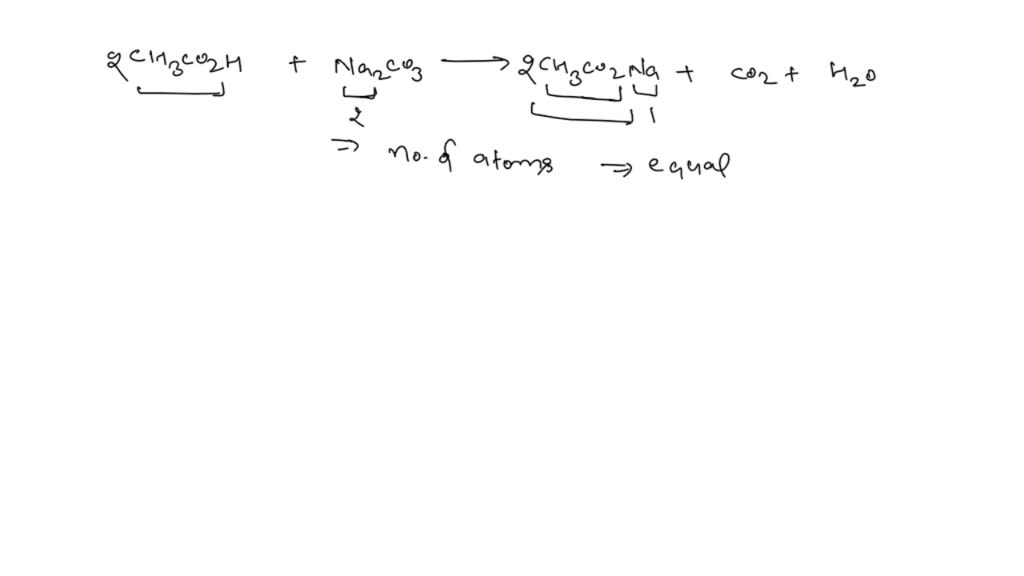 2CH₃CO₂H + Na₂CO₃ ⟶ 2CH₃CO₂Na + CO₂ + H₂O
2 1
⇒ no. of atoms ⇒ equal